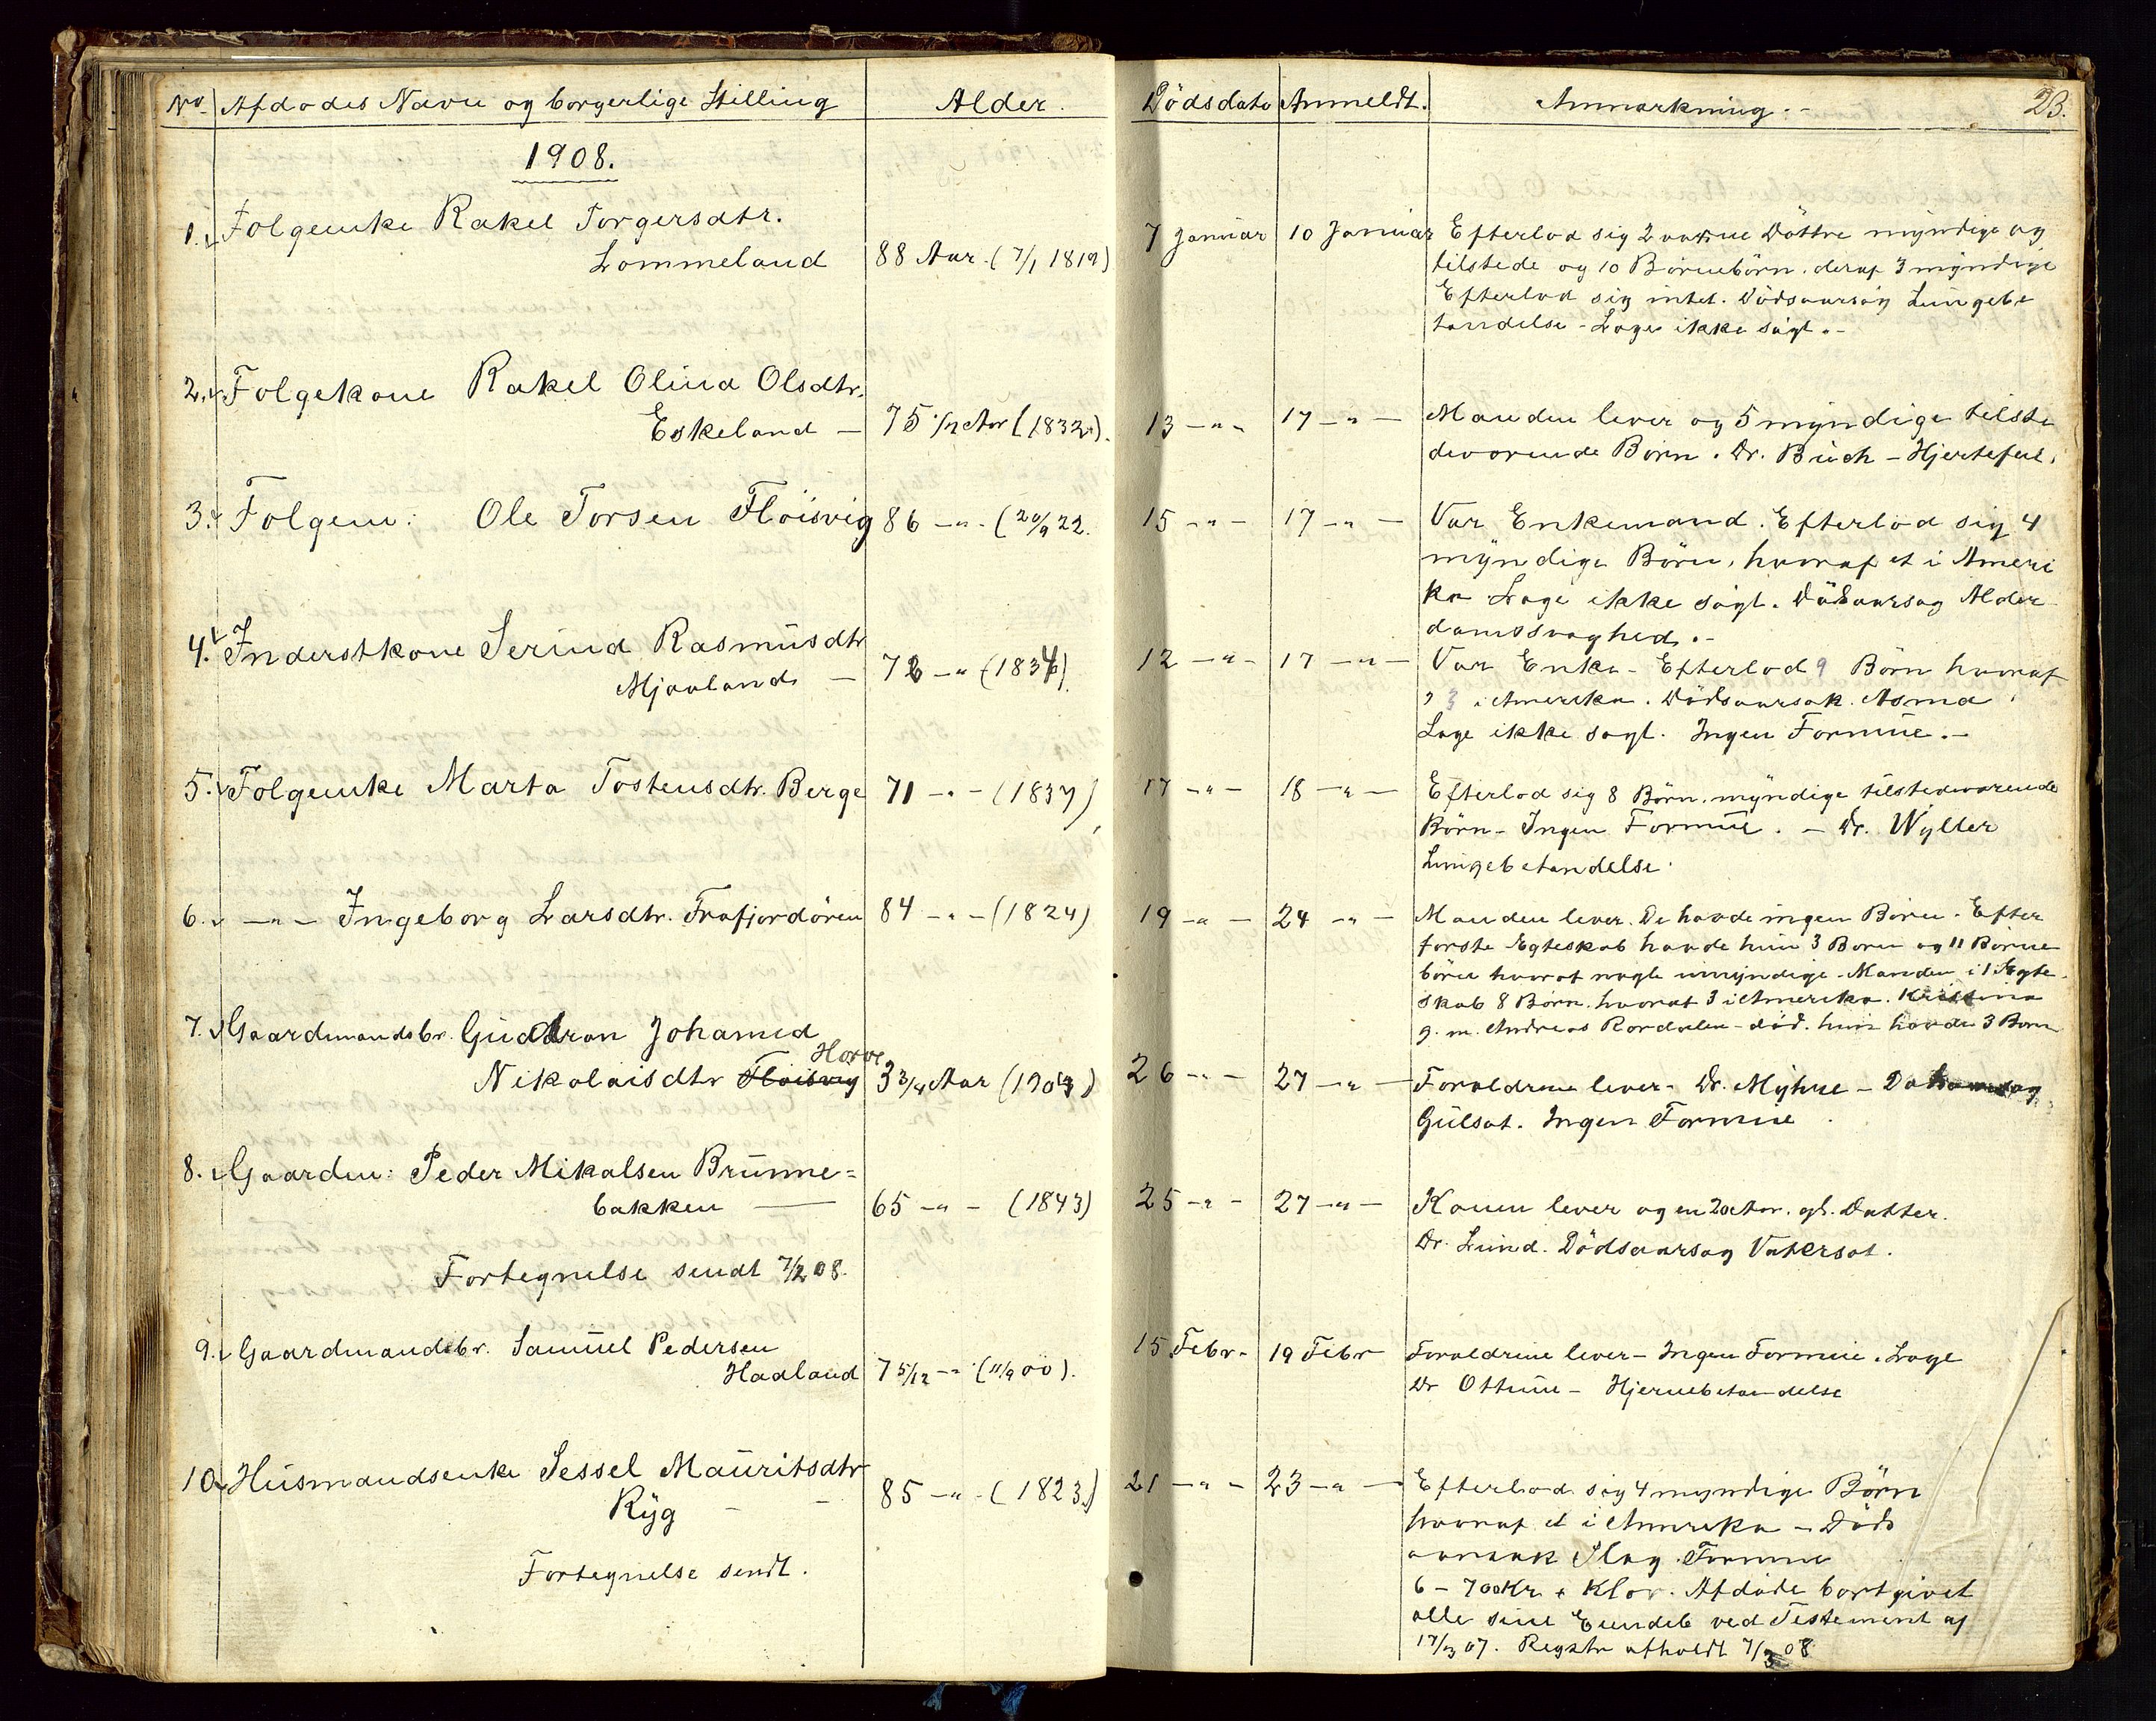 No. Afdødes Navn og borgerlige Stilling Alder. Dödsdato Anmeldt. Anmærkning.- 23.
1908.
1. Folgeenke Rakel Torgersdtr.
Lommeland 88 Aar. (7/1 1819) 7 Januar 10 Januar
Efterlod sig 2 voxne Döttre myndige og
tilstede og 10 Börnebörn. deraf 3 myndige
Efterlod sig intet. Dödsaarsag Lungebe
tændelse - Læge ikke sögt.-
2. Folgekone Rakel Olina Olsdtr.
Eskeland - 75 1/12 Aar (1832). 13 -"- 17 -"-
Manden lever og 5 myndige tilste
deværende Börn. Dr. Buch - Hjertefeil.
3. Folgem: Ole Torsen Flöisvig 86 -"- (20/9 22. 15 -"- 17 -"-
Var Enkemand. Efterlod sig 4
myndige Börn, hvoraf et i Ameri
ka Læge ikke sögt. Dödsaarsag Alder
domssvaghed.-
4. Inderstkone Serina Rasmusdtr
Mjaaland - 72 -"- (1834). 12 -"- 17 -"-
Var Enke - Efterlod 9 Börn hvoraf
3 i Amerika. Dödsaarsak. Asma.
Læge ikke sögt. Ingen Formue.-
5. Folgeenke Marta Tostensdtr. Berge 71 -"- (1837) 17 -"- 18 -"-
Efterlod sig 8 Börn. myndige tilstedeværende
Börn - Ingen Formue. - Dr. Wyller
Lungebetændelse.
6. -"- Ingeborg Larsdtr. Frafjordören 84 -"- (1824) 19 -"- 24 -"-
Manden lever. De havde ingen Börn. Efter
förste Egteskab havde hun 3 Born og 11 Börne
börn hvoraf nogle umyndige. Manden i 1 Egte
skab 8 Börn. hvoraf 3 i Amerika. Kristina
g. m. Andreas Rordalen - död. hun havde 3 Born
7. Gaardmandsbr. Gudron Johanna
Nikolaisdtr Flöisvig Horve 3 3/4 Aar (1904) 26 -"- 27 -"-
Foraldrene lever - Dr. Myhre -
Gulsot. Ingen Formue.
8. Gaardm: Peder Mikalsen Brunne=
bakken - 65 -"- (1843) 25 -"- 27 -"-
Konen lever og en 20 Aar. gl. Datter.
Dr. Lund. Dödsaarsag Vatersot.
Fortegnelse sendt 7/2 08.
9. Gaardmandsbr. Samuel Pedersen
Haaland 7 5/12 -"- (11/9 00). 15 Febr. 19 Febr
Foraldrene lever - Ingen Formue. Læge
Dr Ottune - Hjernebetændelse
10. Husmandsenke Sessel Mauritsdtr
Ryg - - 85 -"- (1823.) 21 -"- 23 -"-
Efterlod sig 4 myndige Börn
hvoraf et i Amerika - Döds
aarsak Slag. Formue
6 - 700 Kr + Klær. Afdöde bortgivet
alle sine Eiendele ved Testament af
17/3 07. Registr afholdt 7/3 08
Fortegnelse sendt.